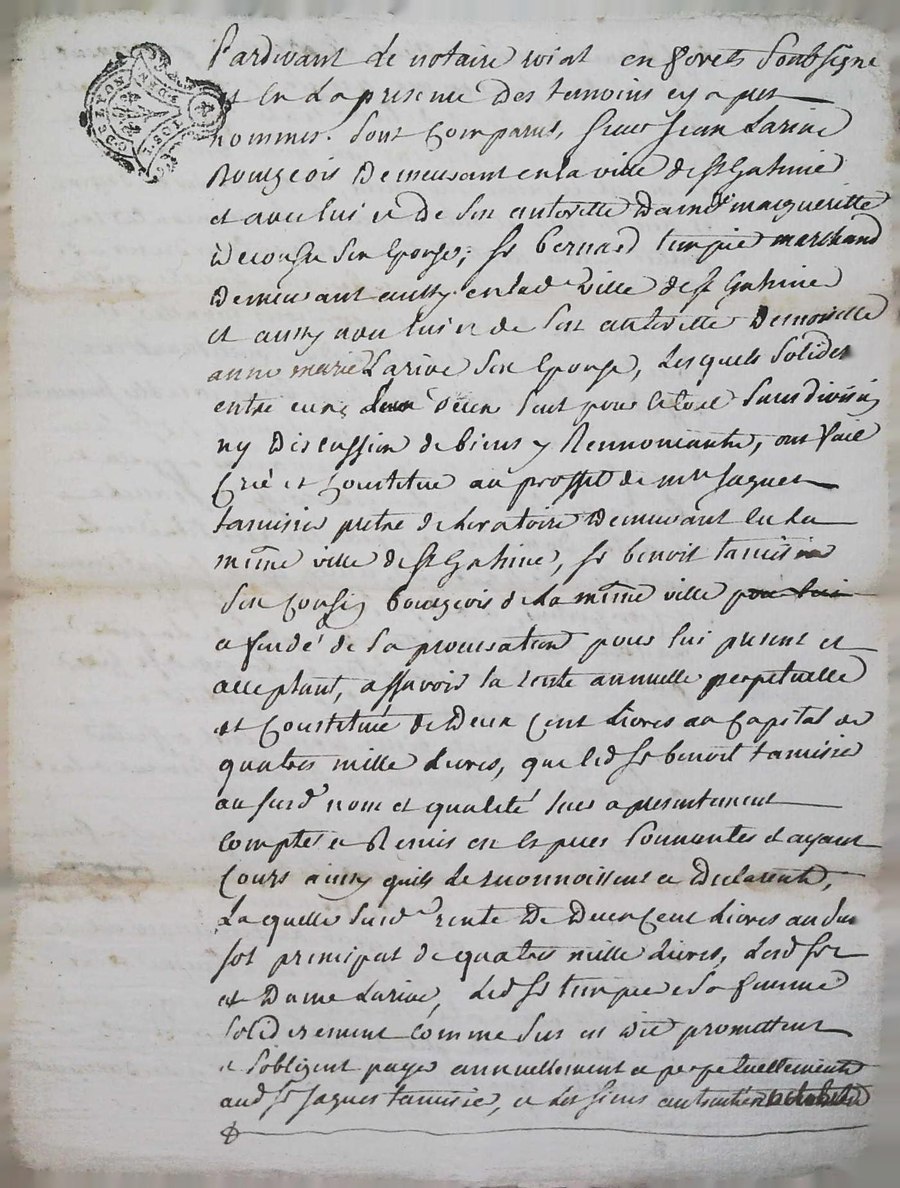 Pardevant le notaire roial en forets Soubsigné
et en la presence des temoins cy apres
nommes. Sont Comparus, sieur Jean Larive
Bourgeois Demeurant en la ville de St
et avec lui et De Son autorité Dam.lle margueritte
Son Epouse; Sr bernard marchand
Demeurant aussy en lad ville de St
et aussy avec lui et de Son autorité Demoiselle
anne marie Larive Son Epouse, Lesquels Solider
entre eux deux d'eux Seul pour le tout Sans division
ny Discussion de biens y Rennoncants, ont fait
Créé et Constitué au proffit de mre Jaques
tamisie pretre de Loratoire Demeurant en La
même ville de St, Sr benoit tamisie
Son Cousin bourgeois de La même ville pour lui
a fondé de Sa procuration pour lui present et
acceptant, assavoir la rente annuelle perpetuelle
et Constituée de Deux Cent Livres au Capital de
quatres mille Livres, que led Sr benoit tamisie
au susd nom et qualité leur a presentement
Compté et Remis en Especes Sonnantes et ayant
Cours ainsy quils Le reconnoissent et Declarent,
La quelle Susd.e rente De Deux Cent Livres au Sus
sol principal de quatres mille Livres, Lesd Sr
et Dame Larive, Led Sr et Sa femme
Soliderement Comme Sus est Dit promettent
et Sobligent payer annuellement et perpetuellement
aud Sr Jaques tamisie, et Les Siens